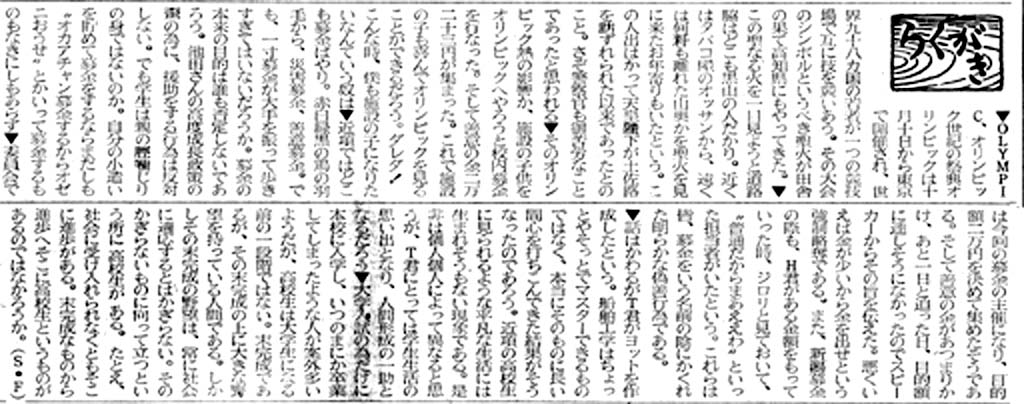 らくがき
▼OLYMPI
C、オリンピッ
ク世紀の祭典オ
リンピックは十
月十日から東京
で開催され、世
界九十八カ国の若者が一つの競技
場で互に技を競いあう。その大会
のシンボルというべき聖火が田舎
の果て高知県にもやってきた。▼
この聖なる火を一目見ようと道路
脇はどこも黒山の人だかり。近く
はタバコ屋のオッサンから、遠く
は何粁も離れた山奥から聖火を見
に来たお年寄りもいたという。こ
の人出はかつて天皇陛下が土佐路
を訪れられた以来であったとの
こと。さぞ警察官も御苦労なこと
であったと思われる▼そのオリン
ピック熱の影響か、施設の子供を
オリンピックへやろうと校内募金
を行なった。そして善意の金二万
二十三円が集まった。これで施設
の子も喜んでオリンピックを見る
ことができるだろう。
こんな時、僕も施設の子になりた
いなんていう奴は▼近頃ではどこ
も募金ばやり。赤白緑黒の鳥の羽
手から、災害募金、で
も、一寸募金が大手を振って歩き
すぎてはいないだろうか。募金の
本来の目的は誰も否定しないであ
ろう。池田さんの高度成長政策の
為に、援助をする行為は反対
しない。でも学生は親の脛かじり
の身ではないのか。自分の小遣い
を貯めて募金をするなら美しくも
“オカアチャン募金するからオゼ
ニおくせ”とかいって募金するも
のもなきにしもあらず▼委員会で
は今回の募金の主催になり、目的
額二万円を決めて集めたそうであ
る。そして善意の金があつまりか
け、あと一日と迫った日、目的額
に達しそうになかったのでスピー
カーからその旨を伝えた。悪くい
えば金が少いから金を出せという
強制略奪である。また、新潟募金
の際も、H君がある金額をもって
いった時、ジロリと見ておいて、
“普通だからまあええわ”といっ
た担当者がいたという。これらは
皆、募金をいう名前の陰にかくれ
た明らかな偽善行為である。
▼話はかわるがT君がヨットを作
成したという。船舶工学はちょっ
とやそっとでマスターできるもの
ではなく、本当にそのものに長い
間心を打ちこんできた結果がそう
なったのであろう。近頃の高校生
に見られるような平凡な生活には
生まれそうもない現象である。是
非は個人個人によって異なると思
うが、T君にとっては学生生活の
思い出となり、人間形成の一助と
なるだろう▼大学入試の為だけに
本校に入学し、いつのまにか卒業
してしまったような人が案外多い
ようだが、高校生は大学生になる
前の一段階ではない。未完成であ
るが、その未完成の上に大きな希
望を持っている人間である。しか
しその未完成の野望は、常に社会
に適応するとはかぎらない。その
かぎらないものに向って立つとい
う所に高校生がある。たとえ、
社会に受け入れられなくともそこ
に進歩がある。未完成なものから
進歩へそこに高校生というものが
あるのではなかろうか。（S・F）